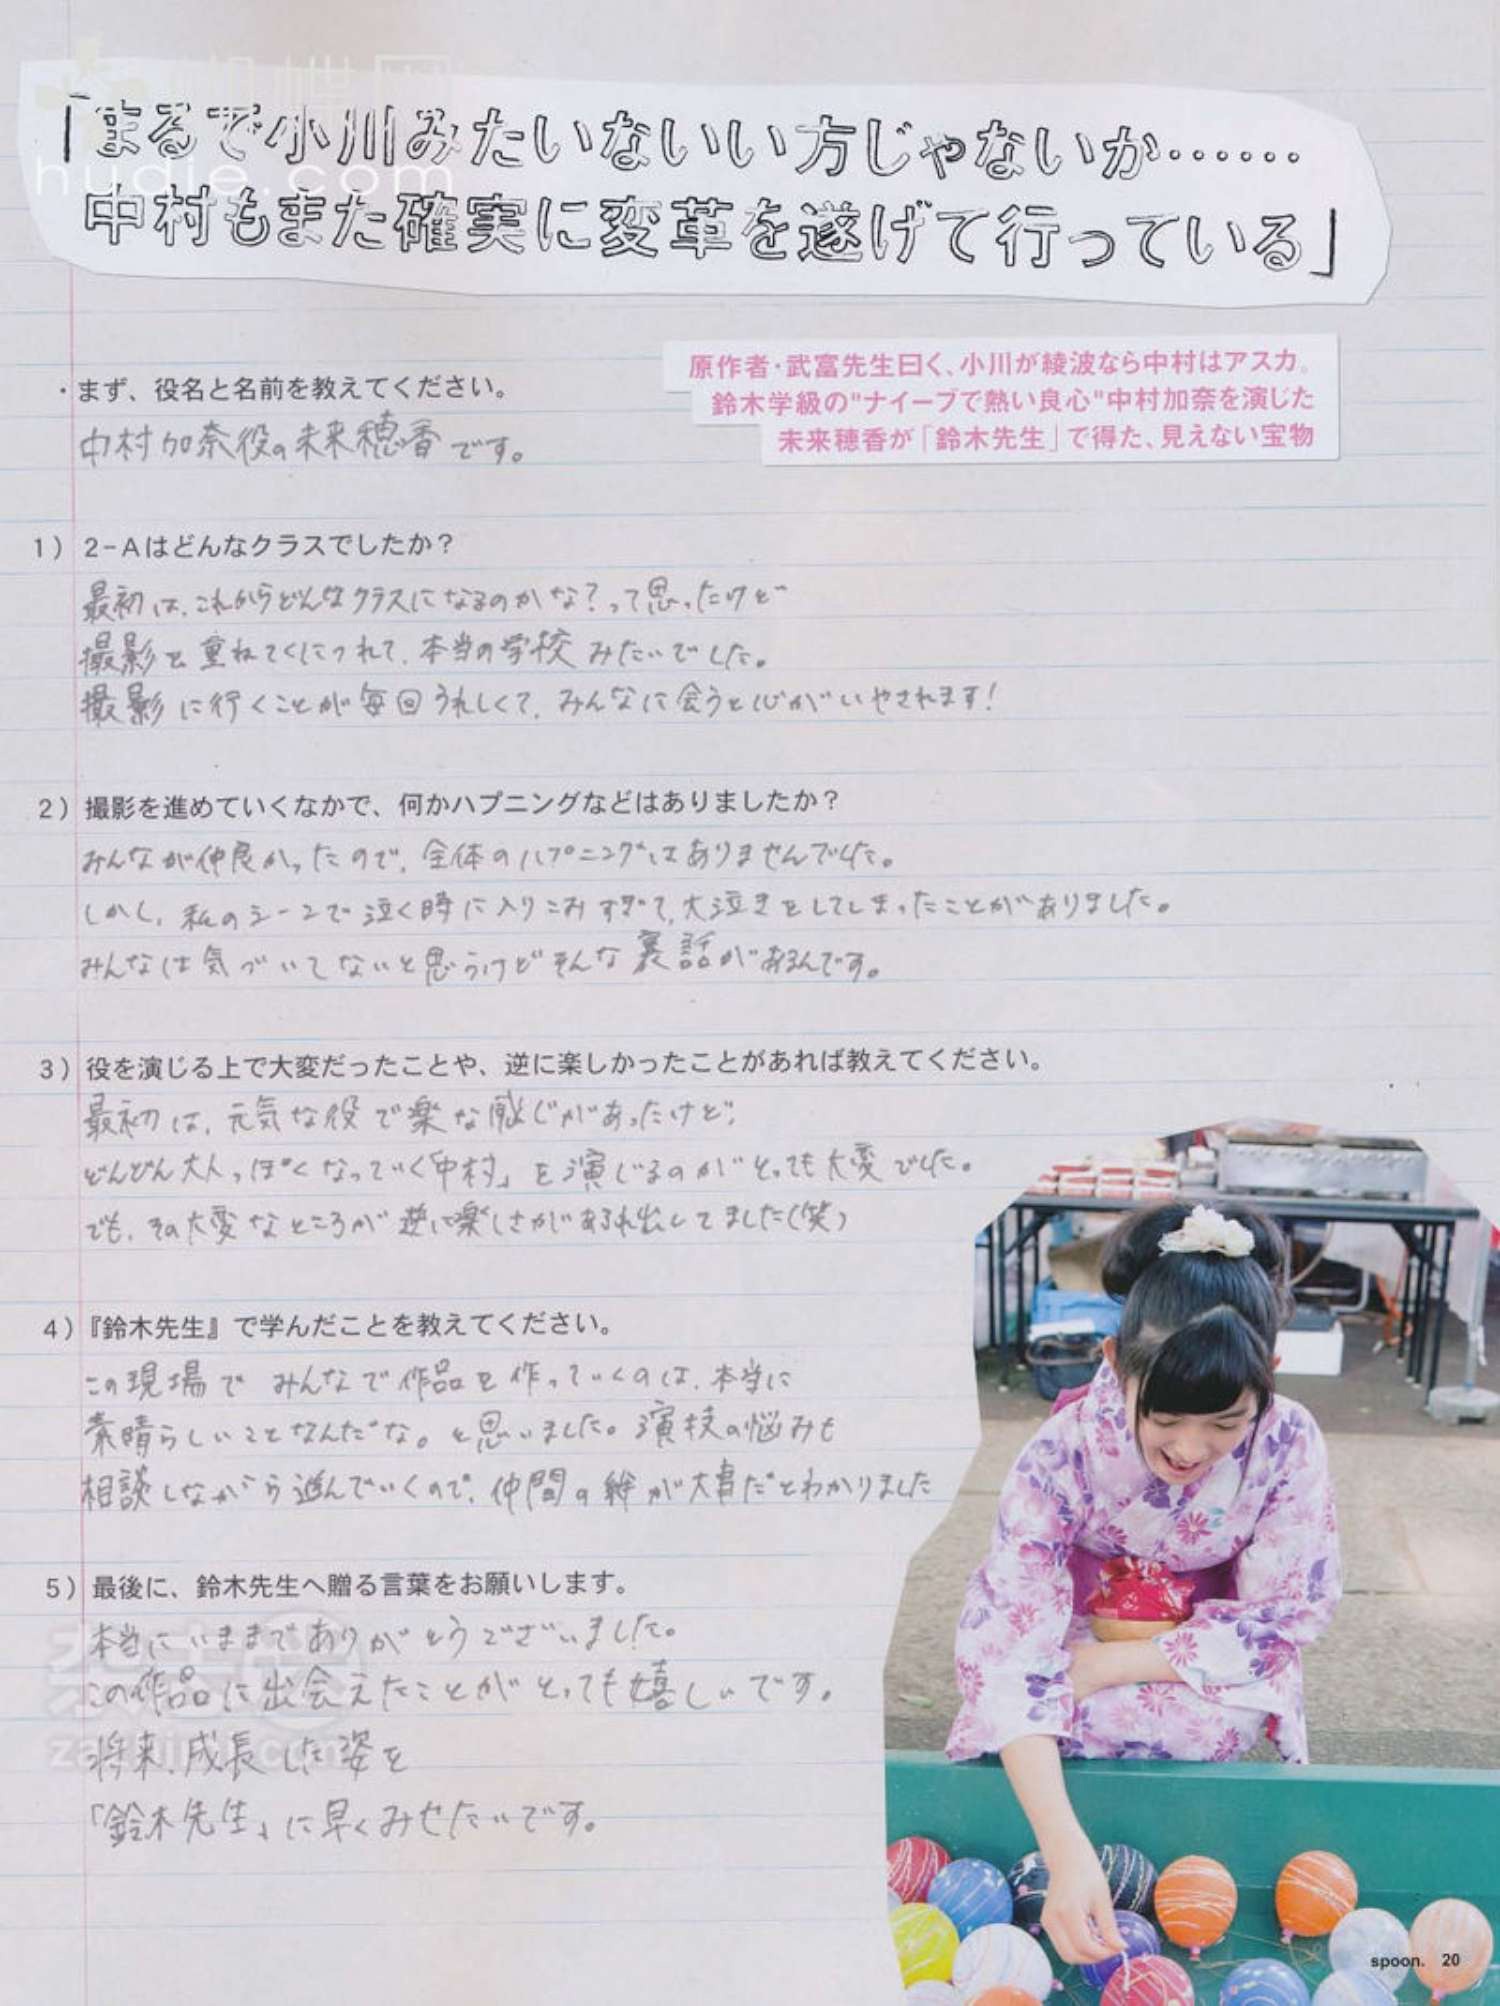 蝴蝶网
hudie.com
「まるで小川みたいないい方じゃないか……
中村もまた確実に変革を遂げて行っている」
原作者・武富先生曰く、小川が綾波なら中村はアスカ。
鈴木学級の"ナイーブで熱い良心"中村加奈を演じた
未来穂香が「鈴木先生」で得た、見えない宝物
・まず、役名と名前を教えてください。
中村加奈役の未来穂香です。
1）2-Aはどんなクラスでしたか？
最初は、これからどんなクラスになるのかな？って思ったけど
撮影を重ねてくにつれて、本当の学校みたいでした。
撮影に行くことが毎回うれしくて、みんなに会うと心がいやされます！
2）撮影を進めていくなかで、何かハプニングなどはありましたか？
みんなが仲良かったので、全体のハプニングはありませんでした。
しかし、私のシーンで泣く時に入りこみすぎて、大泣きをしてしまったことがありました。
みんなは気づいてないと思うけどそんな裏話があるんです。
3）役を演じる上で大変だったことや、逆に楽しかったことがあれば教えてください。
最初は、元気な役で楽な感じがあったけど、
どんどん大人っぽくなっていく「中村」を演じるのがとっても大変でした。
でも、その大変なところが逆に楽しさがあふれ出してました（笑）
4）『鈴木先生』で学んだことを教えてください。
この現場でみんなで作品を作っていくのは、本当に
素晴らしいことなんだな。と思いました。演技の悩みも
相談しながら進んでいくので、仲間の絆が大事だとわかりました
5）最後に、鈴木先生へ贈る言葉をお願いします。
本当にいままでありがとうございました。
この作品に出会えたことがとっても嬉しいです。
将来、成長した姿を
「鈴木先生」に早くみせたいです。
spoon. 20